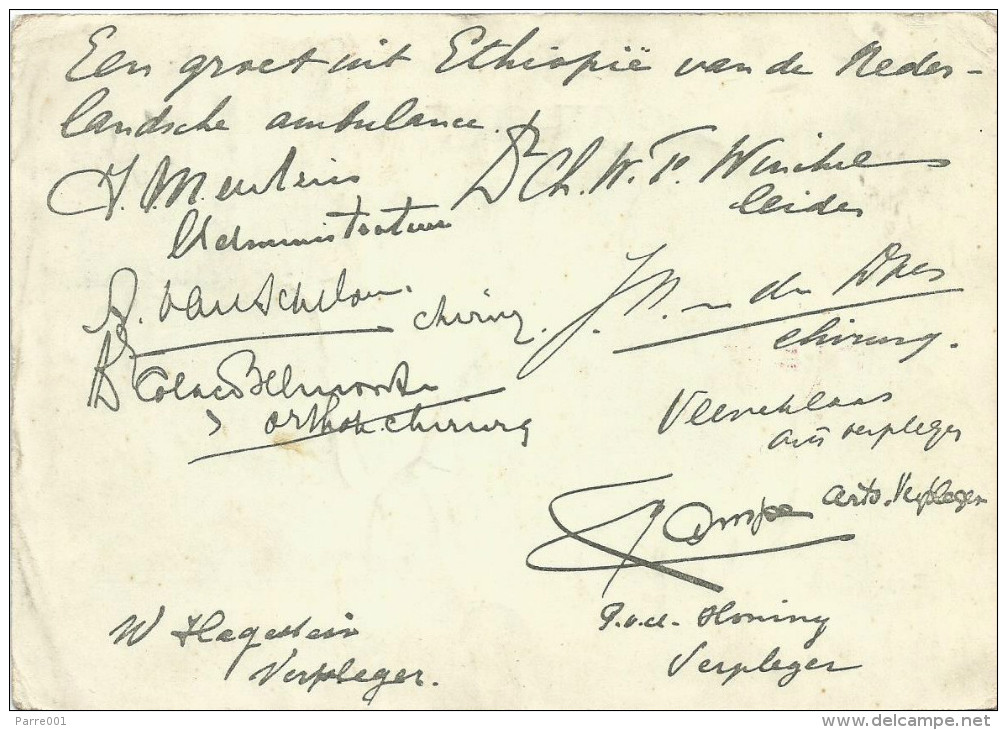 Een groet uit Ethiopië van de Neder-
landsche ambulance.
J. Meulens
Administrateur
Dr Ch. W. F. Winckel
leider
A. van Schelven.
chirurg.
J. N. van der
chirurg.
Dr Colaço Belmonte
orthop. chirurg
Veeneklaas
arts verpleger
arts. Verpleger
W Hagestein
Verpleger.
P. v. d. Honing
Verpleger
Parre001
www.delcampe.net